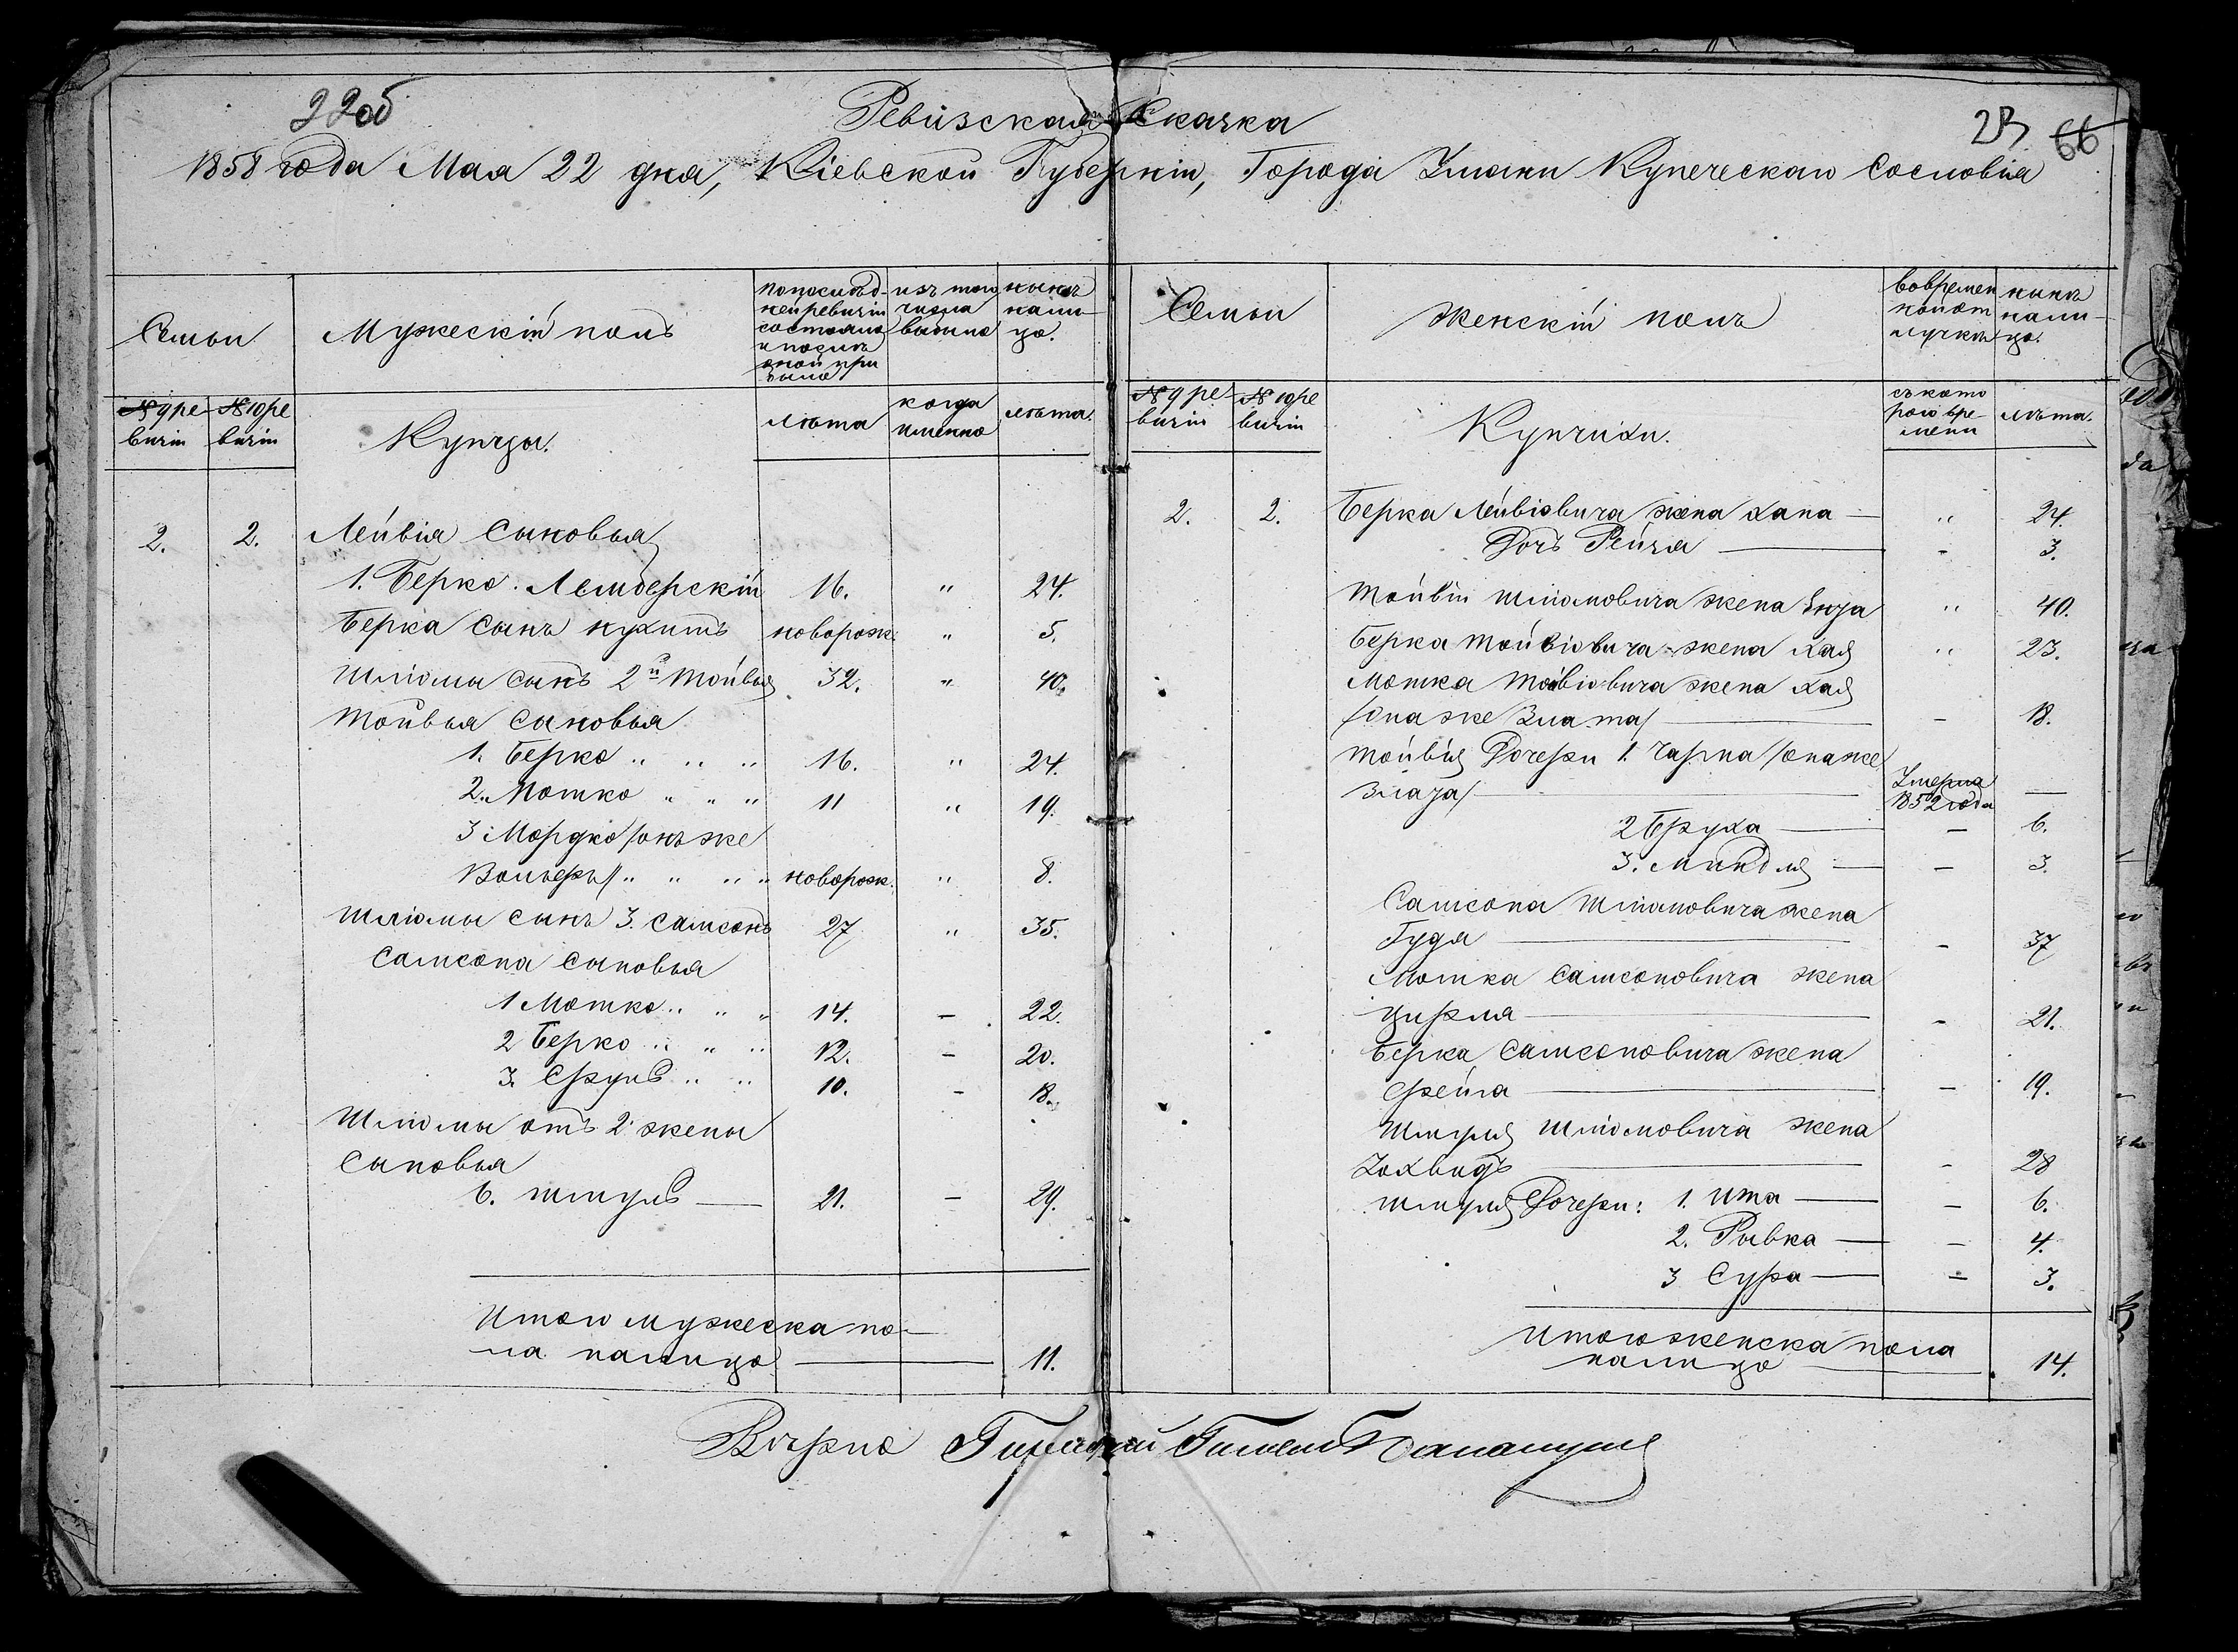 22об
Ревизская Сказка
23 66
1858 года Мая 22 дня, Кіевской Губерніи, Города Умани Купеческаго Сословія
Семьи
Мужескій полъ
по послѣд-
ней ревизіи
состояло
и послѣ
оной при
было
изъ того
числа
выбыло
нынѣ
нали-
цо.
№ 9 ре
визіи
№ 10 ре
визіи
Купцы.
лѣта
когда
именно
лѣта.
2. 2. Лейвія Сыновья
1. Берко Лемберскій 16. " 24.
Берка сынъ Нухимъ новорож: " 5.
Шліомы сынъ 2й Тойвья 32. " 40.
Тойвья Сыновья
1. Берко " " " 16. " 24.
2. Мотко " " " 11 " 19.
3 Мордко /онъ же
Вольеръ/ " " " " новорож. " 8.
Шліомы сынъ 3. Самсонъ 27 " 35.
Самсона сыновья
1 Мотко " " " 14. - 22.
2 Берко " " " 12. - 20.
3. Срулъ " " 10. - 18.
Шліомы отъ 2й жены
Сыновья
6. Шмулъ — 21. - 29.
Итого мужеска по-
ла налицо — 11.
Семьи
Женскій полъ
во времен
ной от
лучкѣ
нынѣ
нали-
цо.
№ 9 ре
визіи
№ 10 ре
визіи
Купчихи.
съ кото
рого вре-
мени
лѣта.
2. 2. Берка Лейвіовича жена Хана — " 24.
Дочь Рейзя — - 3.
Тойвіи Шліомовича жена Энзя " 40.
Берка Тойвіовича жена Хая " 23.
Мотка Тойвіовича жена Хая
/она же Злата/ — - 18.
Тойвія Дочери 1. Чарна /она же
Злата/ — Умерла
1852 года —
2 Бруха — - 6.
3. Миндля — - 3.
Самсона Шліомовича жена
Гудя — - 37
Мотка Самсоновича жена
Цирля — - 21.
Берка Самсоновича жена
Фрейга — - 19.
Шмуля Шліомовича жена
Іохвидъ — - 28
Шмуля Дочери: 1. Ита — - 6.
2. Рывка — - 4.
3 Сура — - 3.
Итого женска пола
налицо — 14.
Вѣрно